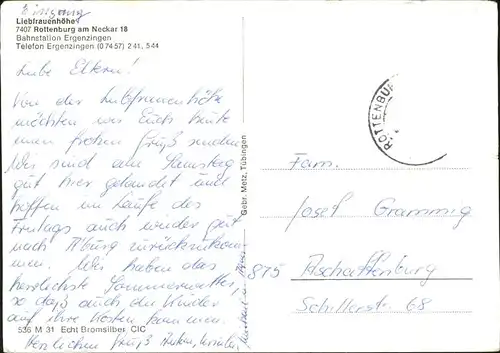 Eingang
Liebfrauenhöhe
7407 Rottenburg am Neckar 18
Bahnstation Ergenzingen
Telefon Ergenzingen (0 74 57) 2 41, 5 44
Liebe Eltern!
Von der Liebfrauenhöhe
möchten wir Euch heute
einen frohen Gruß senden.
Wir sind am Samstag
gut hier gelandet und
hoffen im Laufe des
Freitags auch wieder gut
nach A'burg zurückzukom-
men. Wir haben das
herrlichste Sommerwetter,
so daß auch die Kinder
auf ihre Kosten kommen.
Herzlichen Gruß
536 M 31 Echt Bromsilber CIC
Gebr. Metz, Tübingen
ROTTENBU
Fam.
Josef Grammig
875 Aschaffenburg
Schillerstr. 68